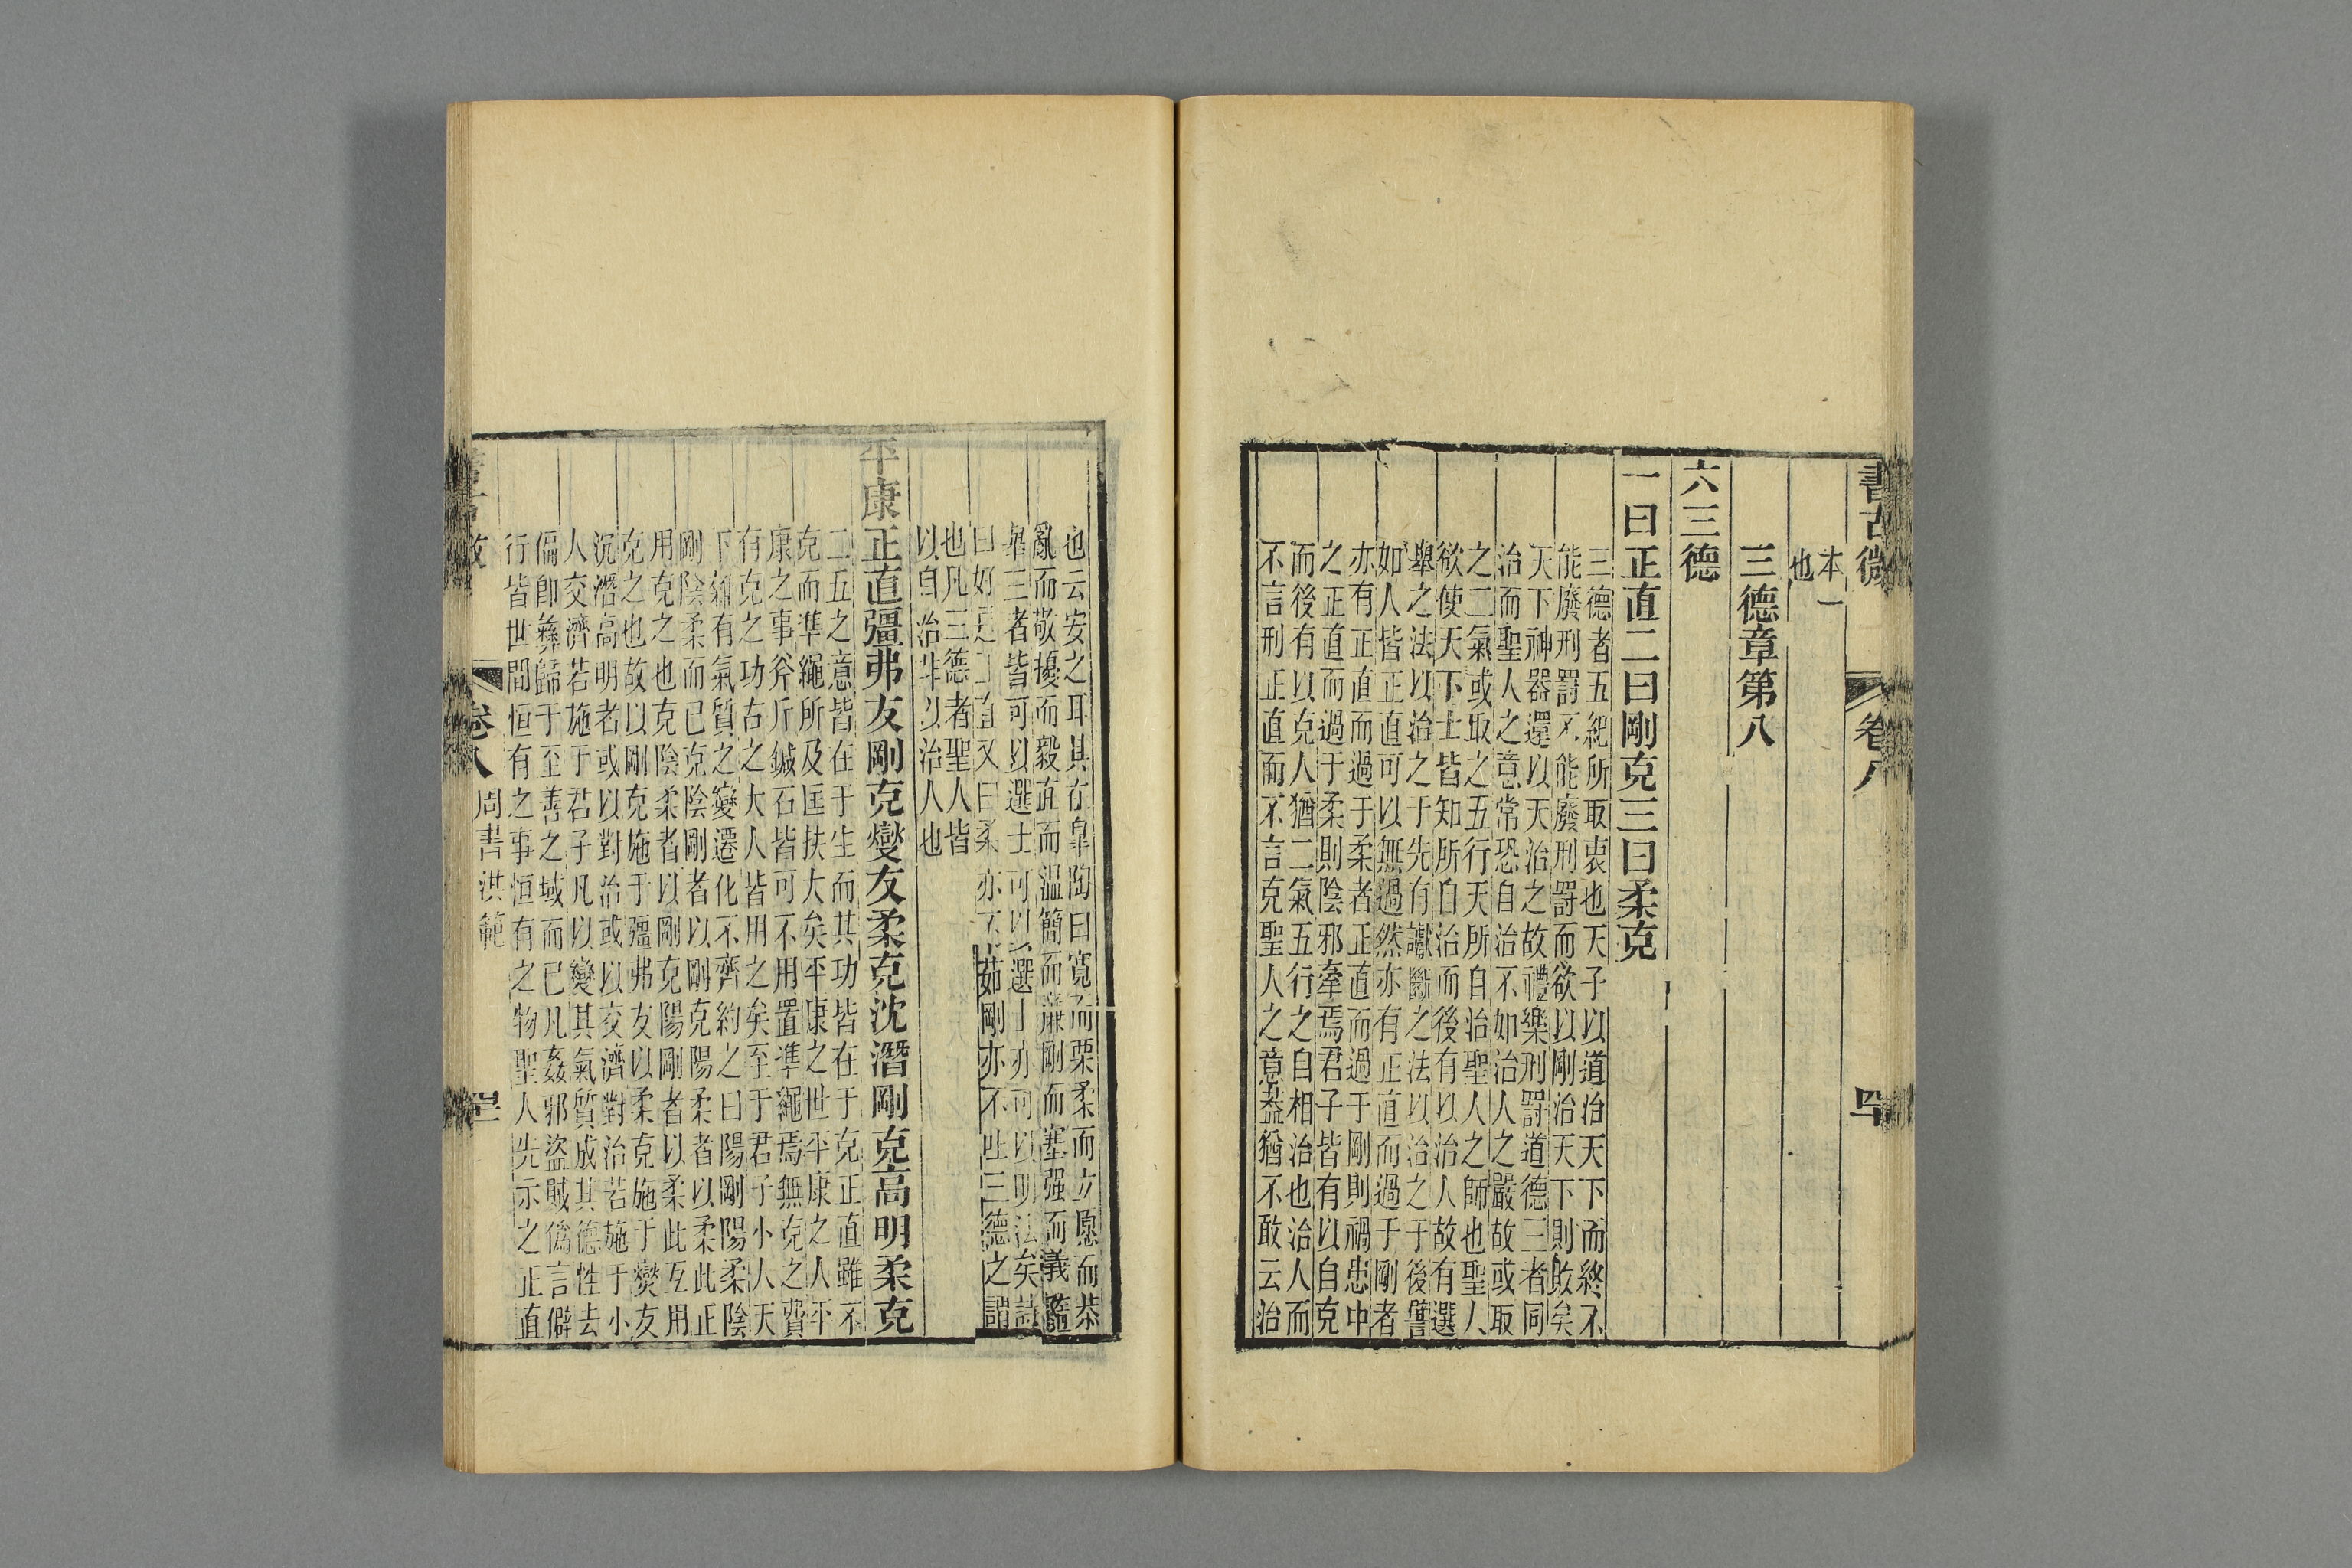 書古微
卷八
本一
也
三德章第八
六三德
一曰正直二曰剛克三曰柔克
三德者五紀所取衷也天子以道治天下而終不
能廢刑罰不能廢刑罰而欲以剛治天下則敗矣
天下神器還以天治之故禮樂刑罰道德三者同
治而聖人之意常恐自治不如治人之嚴故或取
之二氣或取之五行天所自治聖人之師也聖人
欲使天下士皆知所自治而後有以治人故有選
舉之法以治之于先有讞斷之法以治之于後譬
如人皆正直可以無過然亦有正直而過于剛者
亦有正直而過于柔者正直而過于剛則禍患中
之正直而過于柔則陰邪牽焉君子皆有以自克
而後有以克人猶二氣五行之自相治也治人而
不言刑正直而不言克聖人之意葢猶不敢云治
也云安之耳其在皐陶曰寬而栗柔而立愿而恭
亂而敬擾而毅直而温簡而廉剛而塞强而義
舉三者皆可以選士可以選 亦可以明法矣詩
曰好 直又曰柔亦不茹剛亦不吐三德之謂
也凡三德者聖人皆
以自治非以治人也
平康正直彊弗友剛克燮友柔克沈潛剛克高明柔克
二五之意皆在于生而其功皆在于克正直雖不
克而準繩所及匡扶大矣平康之世平康之人平
康之事斧斤鍼石皆可不用置準繩焉無克之費
有克之功古之大人皆用之矣至于君子小人天
下 有氣質之變遷化不齊約之曰陽剛陽柔陰
剛陰柔而已克陰剛者以剛克陽柔者以柔此正
用克之也克陰柔者以剛克陽剛者以柔此互用
克之也故以剛克施于彊弗友以柔克施于燮友
沉潛高明者或以對治或以交濟對治若施于小
人交濟若施于君子凡以變其氣質成其德性去
偏卽彝歸于至善之域而已凡姦邪盜賊僞言僻
行皆世間恒有之事恒有之物聖人先示之正直
卷八
周書洪範